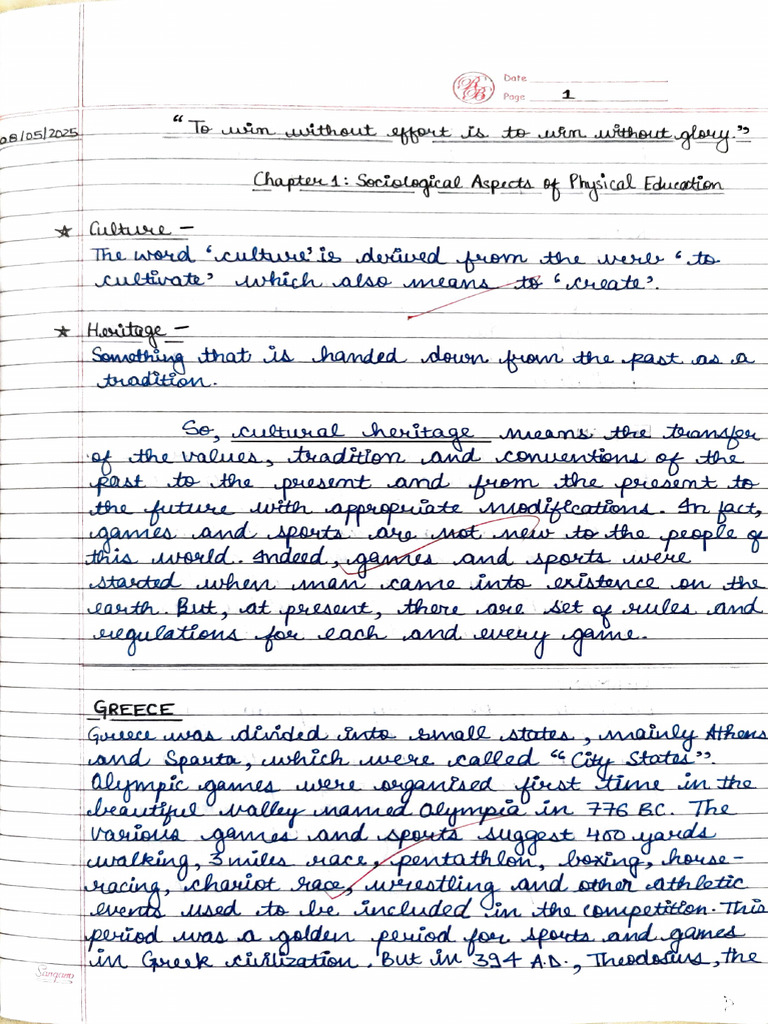 RB
Date
Page 1
08/05/2025
"To win without effort is to win without glory."
Chapter 1: Sociological Aspects of Physical Education
★ Culture -
The word 'culture' is derived from the verb 'to
cultivate' which also means to 'create'.
★ Heritage -
Something that is handed down from the past as a
tradition.
So, cultural heritage means the transfer
of the values, tradition and conventions of the
past to the present and from the present to
the future with appropriate modifications. In fact,
games and sports are not new to the people of
this world. Indeed, games and sports were
started when man came into existence on the
earth. But, at present, there are set of rules and
regulations for each and every game.
GREECE
Greece was divided into small states, mainly Athens
and Sparta, which were called "City States".
Olympic games were organised first time in the
beautiful valley named Olympia in 776 BC. The
various games and sports suggest 400 yards
walking, 3 miles race, pentathlon, boxing, horse-
racing, chariot race, wrestling and other athletic
events used to be included in the competition. This
period was a golden period for sports and games
in Greek civilization. But in 394 A.D., Theodosius, the
Sangam